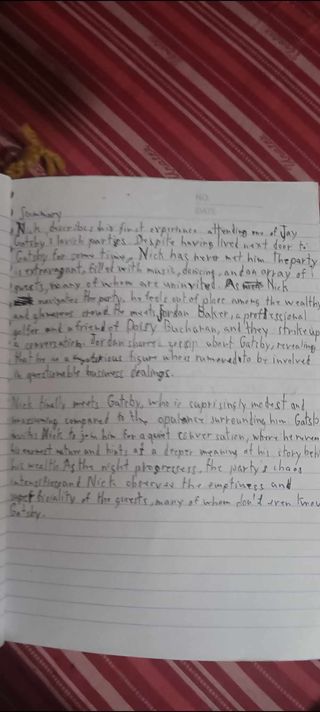 NO.
DATE
Summary
Nick describes his first experience attending one of Jay
Gatsby's lavish parties. Despite having lived next door to
Gatsby for some time, Nick has never met him. The party
is extravagant, filled with music, dancing, and an array of
guests, many of whom are uninvited. As Nick
navigates the party, he feels out of place among the wealthy
and glamorous crowd. He meets Jordan Baker, a professional
golfer and a friend of Daisy Buchanan, and they strike up
a conversation. Jordan shares gossip about Gatsby, revealing
that he is a mysterious figure who is rumored to be involved
in questionable business dealings.
Nick finally meets Gatsby, who is suprisingly modest and
compared to the opulence surrounding him. Gatsb
invites Nick to join him for a quiet conversation, where he
his earnest nature and hints at a deeper meaning of his story beh
his wealth. As the night progresses, the party's chaos
and Nick observes the emptiness and
of the guests, many of whom don't even know
Gatsby.